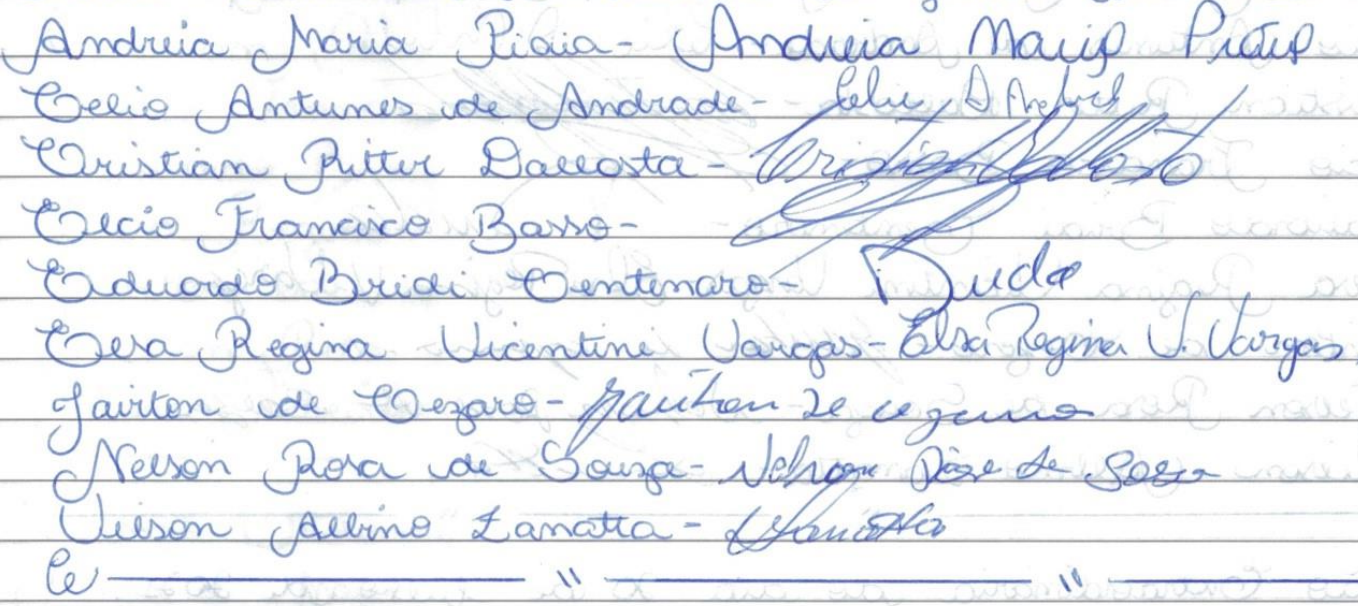 Andreia Maria Piaia - Andreia Maria Piaia
Celio Antunes de Andrade -
Cristian Ritter Dallcosta - Cristian Dallcosta
Elcio Francisco Basso -
Eduardo Bridi Centenaro - Duda
Elsa Regina Vicentini Vargas - Elsa Regina V. Vargas
Jairton de Cezaro - Jairton de Cezaro
Nelson Rosa de Souza - Nelson Rosa de Souza
Vilson Albino Zanatta - Zanatta
" "